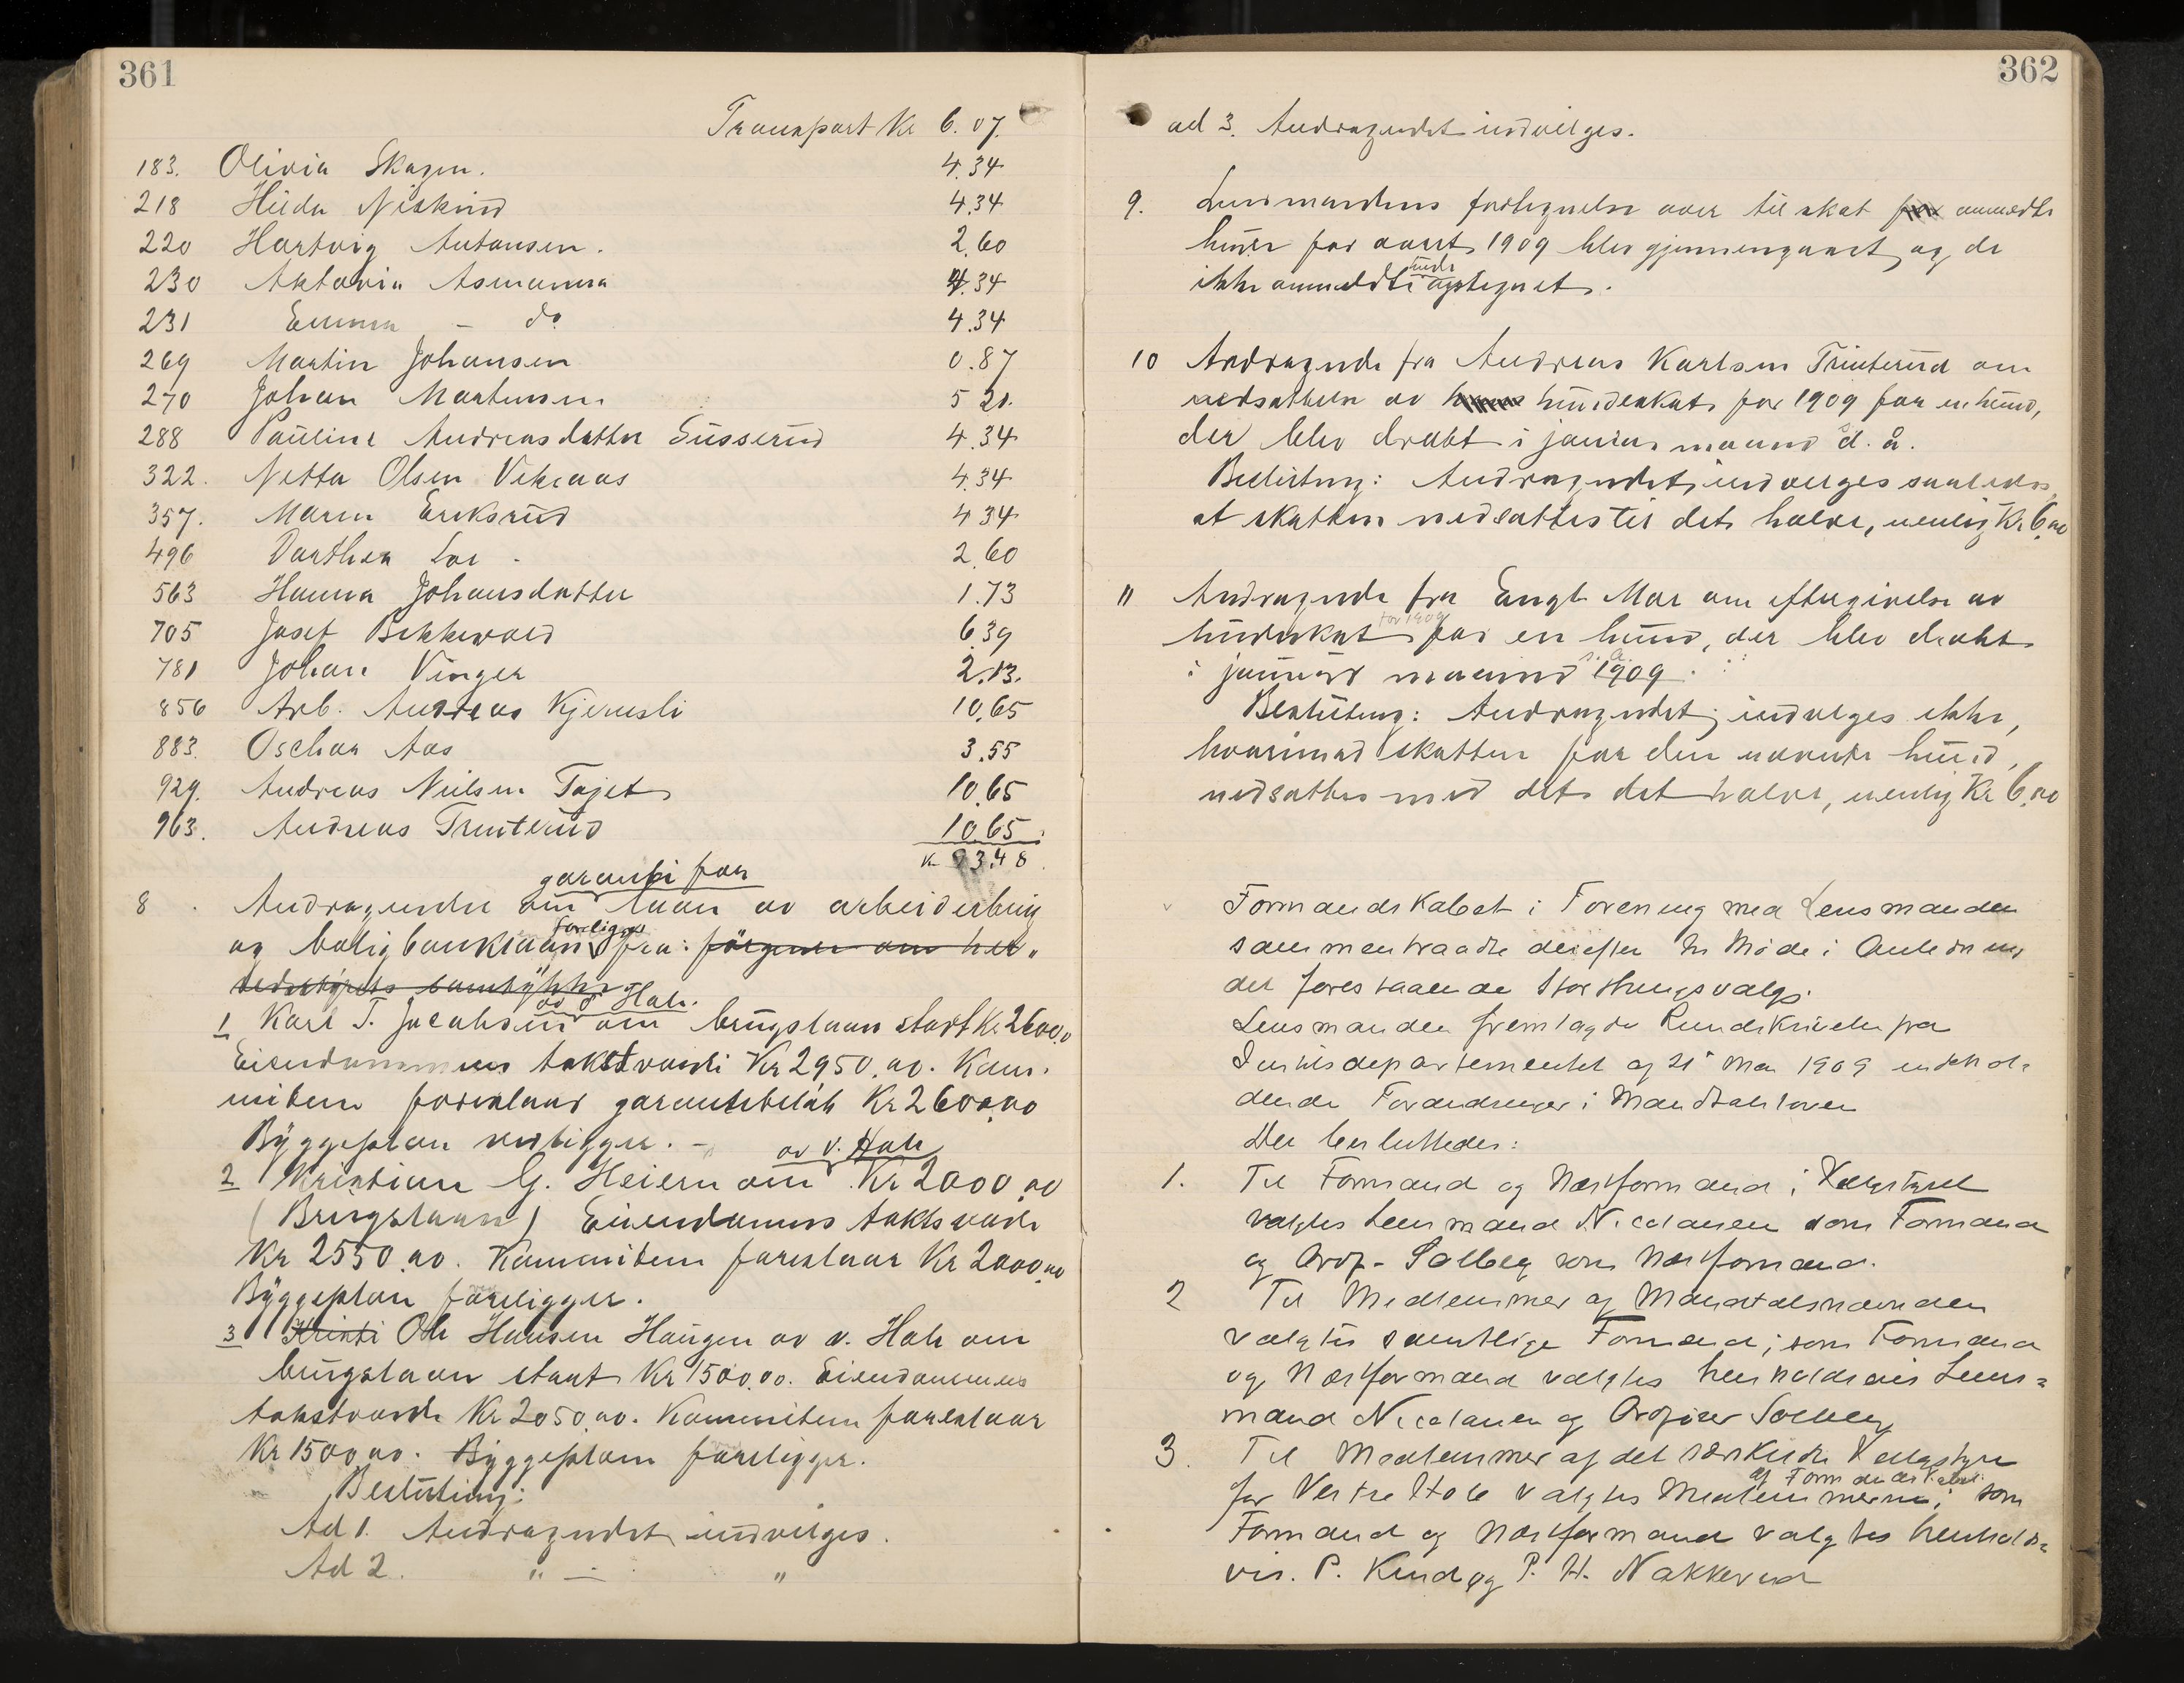 361
Transport Kr 6.07.
183. Olivia Skagen. 4.34
218 Hilda Niskind 4.34
220 Hartvig Antonsen. 2.60
230 Aktavia Asmanna 4.34
231 Emma – do 4.34
269 Martin Johansen 0.87
270 Johan Martinsen 5 21.
288 Pauline Andreasdatter Susserud 4.34
322. Netta Olsen Vekraas 4.34
357. Maren Eriksrud 4 34
496 Dorthea Loe - 2.60
563 Hanna Johansdatter 1.73
705 Josef Bekkevold 6.39
781 Johan Vinger 2.13.
856 Arb. Andreas Kjemsli 10.65
883. Oschar Aas 3.55
929. Andreas Nielsen Tajet 10.65
963. Andreas Trinterud 10.65
Kr 93.48
garanti for
8 . Andragender om laan av arbeiderbrug
og boligbanklaan foreligger fra: förgjeves om her„
redsstyrets samtykke
av v. Hole.
1 Karl T. Jacobsen om brugslaan stort Kr. 2600.0
Eiendommens takstværdi Kr 2950.00. Kom.
miteen foreslaar garantibeløb Kr 2600.00
Byggeplan vedligger. –
av v. Hole
2 Kristian G. Heiern om Kr 2000.00
(Brugslaan) Eiendommens taksts værdi
Kr 2550.00. Kommiteen foreslaar Kr 2000.00
Byggeplan foreligger.
3 Kristi Ole Hansen Haugen av v. Hole om
brugslaan stort Kr 1500.00. Eiendommens
takstværdi Kr 2050.00. Kommiteen foreslaar
Kr 1500.00. Byggeplan foreligger.
Beslutning:
Ad 1. Andragendet indvilges.
Ad 2. „ – „
362
ad 3. Andragendet indvilges.
9. Lensmandens fortegnelse over til skat for anmeldte
hunde for aaret 1909 blev gjennemgaaet og de
ikke anmeldte hunde optegnet.
10 Andragende fra Andreas Karlsen Trinterud om
nedsættelse av hundeskat for 1909 for en hund,
der blev dræbt i januar maaned d. å.
Beslutning: Andragendet indvilges saaledes
at skatten nedsættes til det halve, nemlig Kr 6.00
11 Andragende fra Engt Moe om eftergivelse av
hundeskat for 1909 for en hund, der blev dræbt
i januar maaned 1909.
Beslutning: Andragendet indvilges ikke,
hvorimod skatten for den nævnte hund,
nedsættes med det det halve, nemlig Kr 6.00
Formandskabet i Forening med Lensmanden
sammentraadte derefter til Møde i Anledning
det forestaaende Storthingsvalg.
Lensmanden fremlagde Rundskrivelse fra
Justitsdepartementet af 21 Mai 1909 indehol-
dende Forandringer i Mandtalsloven
Der besluttedes:
1. Til Formand og Næstformand i Valgstyret
valgtes Lensmand Nicolaisen som Formand
og Ordf. Solberg som Næstformand.
2 Til Medlemmer af Mandtalsnævnden
valgtes samtlige Formænd; som Formand
og Næstformand valgtes henholdsvis Lens=
mand Nicolaisen og Ordfører Solberg
3. Til Medlemmer af det særskilte Valgstyre
for Vestre Hole valgtes Medlemmerne af Formandskabet; som
Formand og Næstformand valgtes henholds=
vis. P. Kind og P. H. Nakkerud